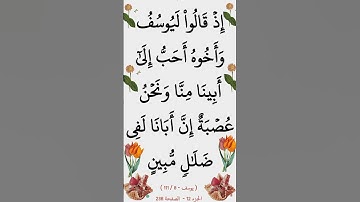 إِذْ قَالُواْ لَيُوسُفُ
وَأَخُوهُ أَحَبُّ إِلَىٰٓ
أَبِينَا مِنَّا وَنَحْنُ
عُصْبَةٌ إِنَّ أَبَانَا لَفِى
ضَلَٰلٍ مُّبِينٍ
( يوسف - 8 / 111 )
الجزء 12 - الصفحة 236